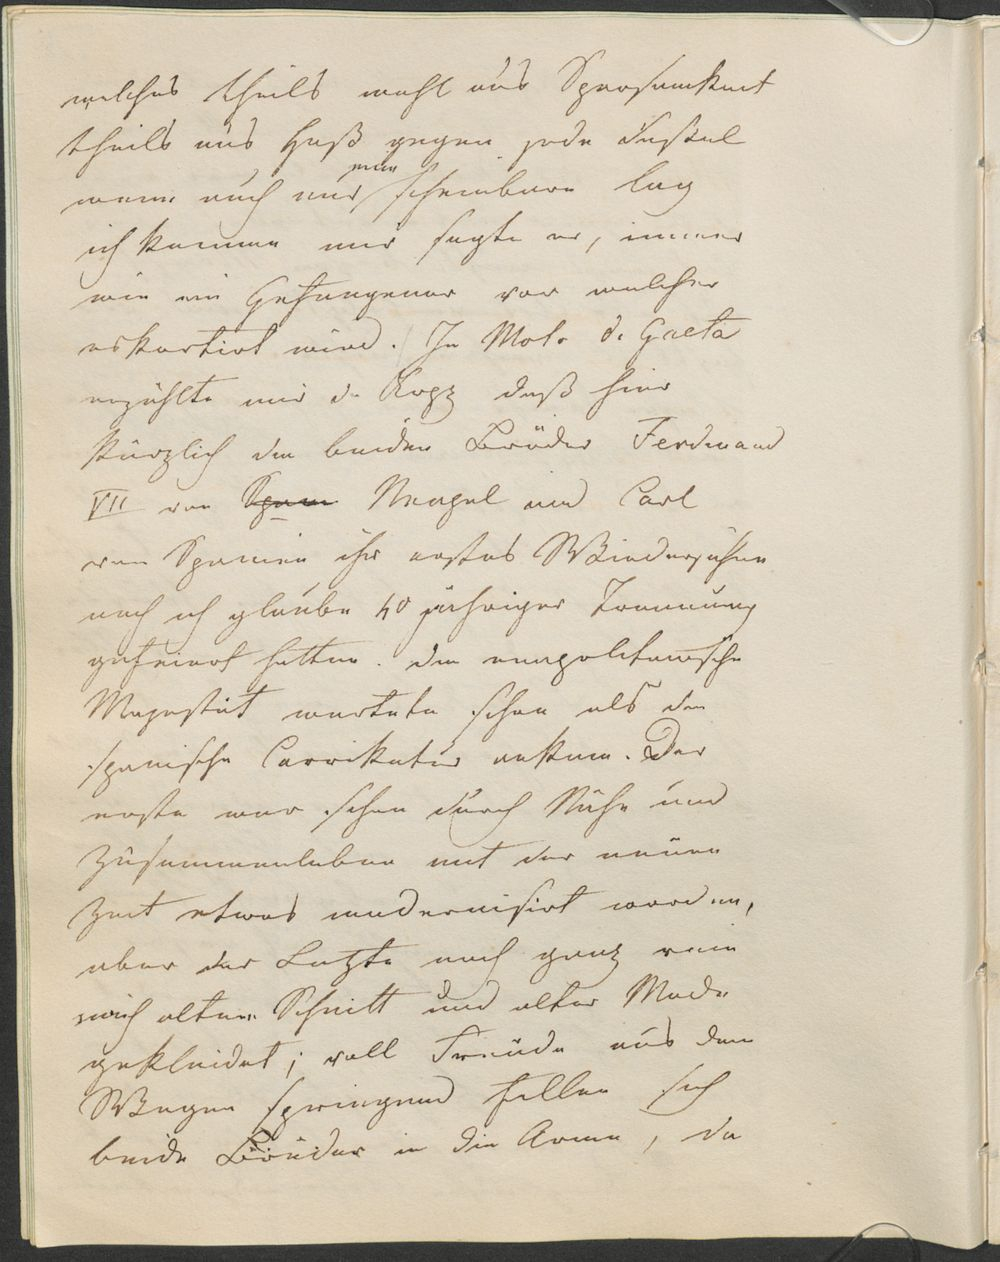 welches theils wohl aus Sparsamkeit
theils aus Haß gegen jede Fessel
wenn auch nur eine scheinbare lag
ich komme mir sagte er, immer
wie ein Gefangener vor welcher
eskortirt wird. In Mola di Gaeta
erzählte mir d. daß hier
kürzlich die beiden Brüder Ferdinand
VII von Span Neapel und Carl
von Spanien ihr erstes Wiedersehen
nach ich glaube 40 jähriger Trennung
gefeiert hatten. Die neapolitanische
Majestät wartete schon als die
spanische Carrikatur ankam. Der
erste war schon durch Nähe und
Zusammenleben mit der neuen
Zeit etwas modernisirt worden,
aber der Letzte noch ganz rein
nach altem Schnitt und alter Mode
gekleidet; voll Freude aus dem
Wagen springend fallen sich
beide Brüder in die Arme, da